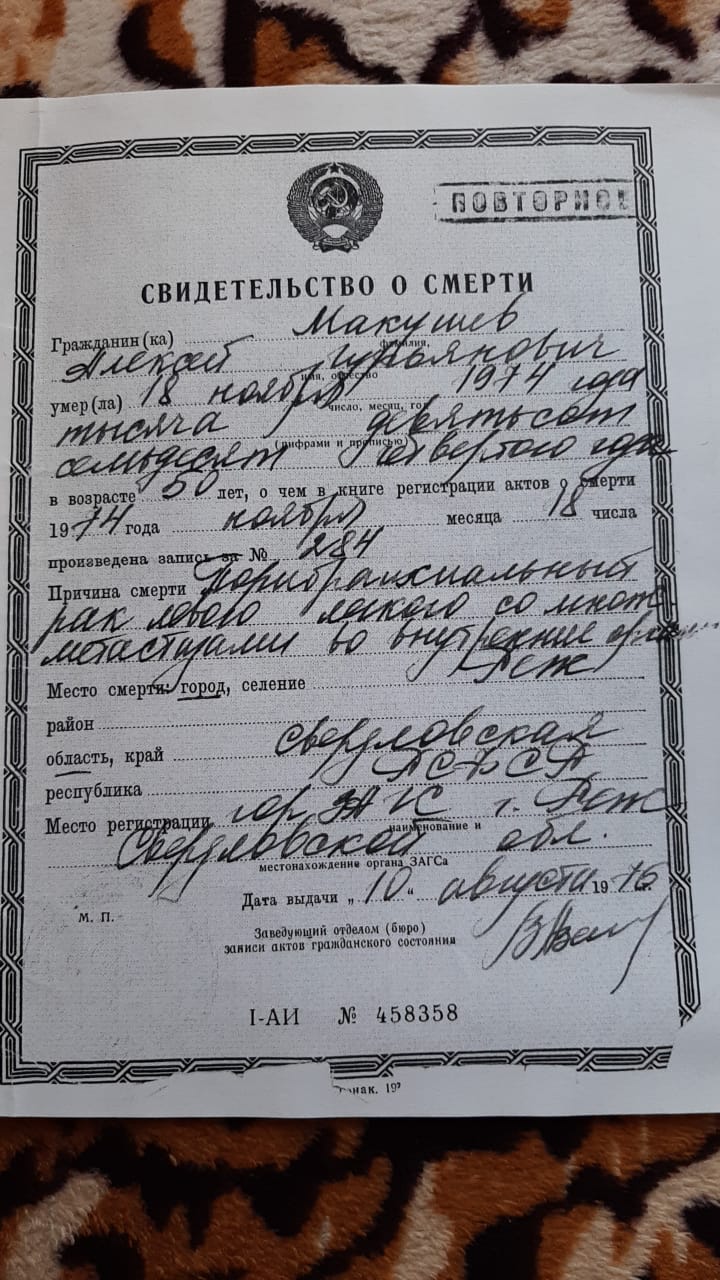 ПОВТОРНОЕ
СВИДЕТЕЛЬСТВО О СМЕРТИ
Гражданин(ка) Макушев
фамилия,
Алексей Гурьянович
имя, отчество
умер(ла) 18 ноября 1974 года
число, месяц, год
тысяча девятьсот
(цифрами и прописью)
семьдесят четвертого года
в возрасте 50 лет, о чем в книге регистрации актов о смерти
1974 года ноября месяца 18 числа
произведена запись за № 284
Причина смерти
рак левого легкого со множ.
метастазами во внутренние органы
Место смерти: город, селение Реж
район
область, край Свердловская
республика РСФСР
Место регистрации гор ЗАГС г. Реж
наименование и
Свердловской обл.
местонахождение органа ЗАГСа
Дата выдачи „10“ августа 1976
М. П.
Заведующий отделом (бюро)
записи актов гражданского состояния
I-АИ № 458358